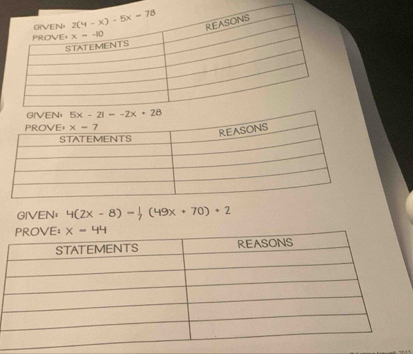 GIVEN: 2(4 - x) - 5x = 78
PROVE: x = -10
STATEMENTS REASONS
GIVEN: 5x - 21 = -2x + 28
PROVE: x = 7
STATEMENTS REASONS
GIVEN: 4(2x - 8) = 1/7 (49x + 70) + 2
PROVE: x = 44
STATEMENTS REASONS